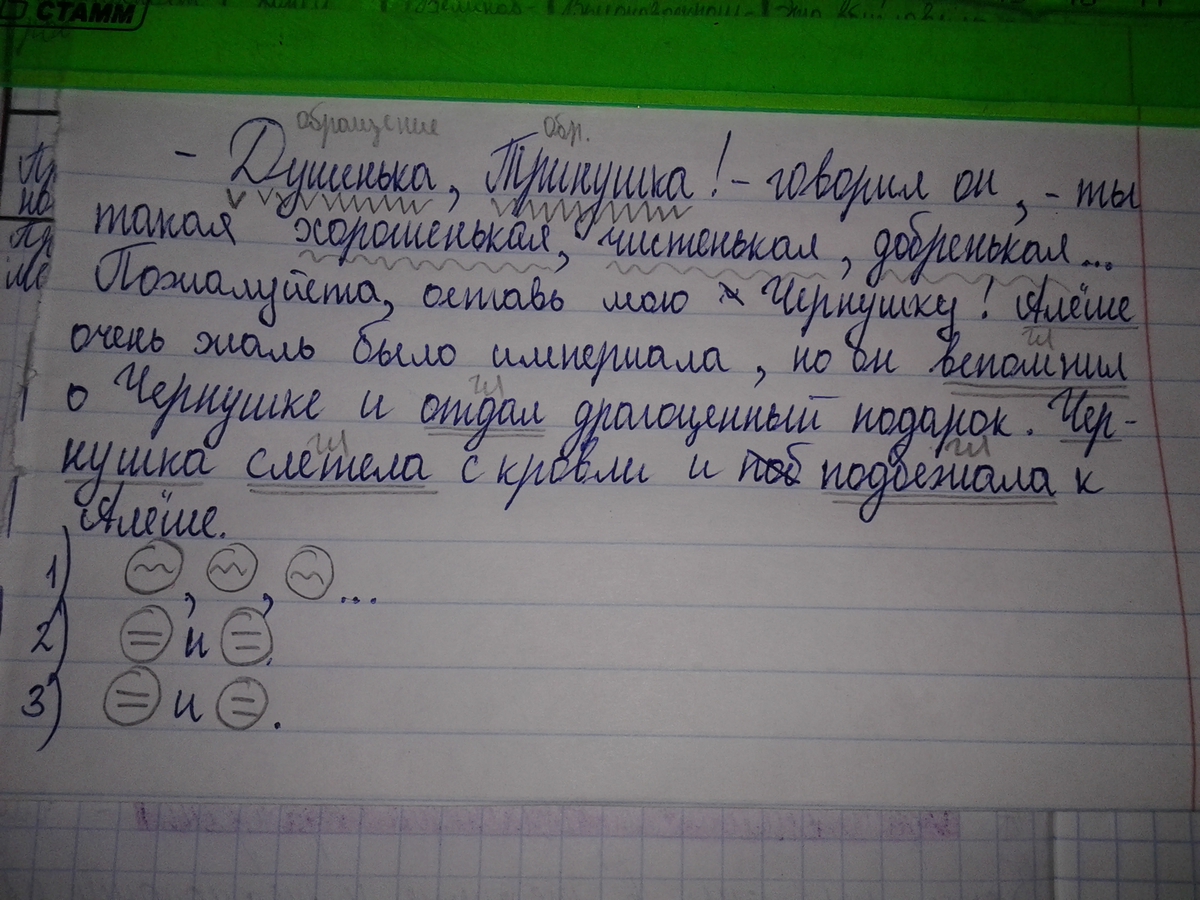 СТАММ
обращение обр.
- Душенька, Тринушка! - говорил он, - ты
такая хорошенькая, чистенькая, добренькая...
Пожалуйста, оставь мою Чернушку! Алёше
гл
очень жаль было империала, но он вспомнил
гл
о Чернушке и отдал драгоценный подарок. Чер-
гл гл
нушка слетела с кровли и поб подбежала к
Алёше.
1) , , ...
2) и .
3) и .